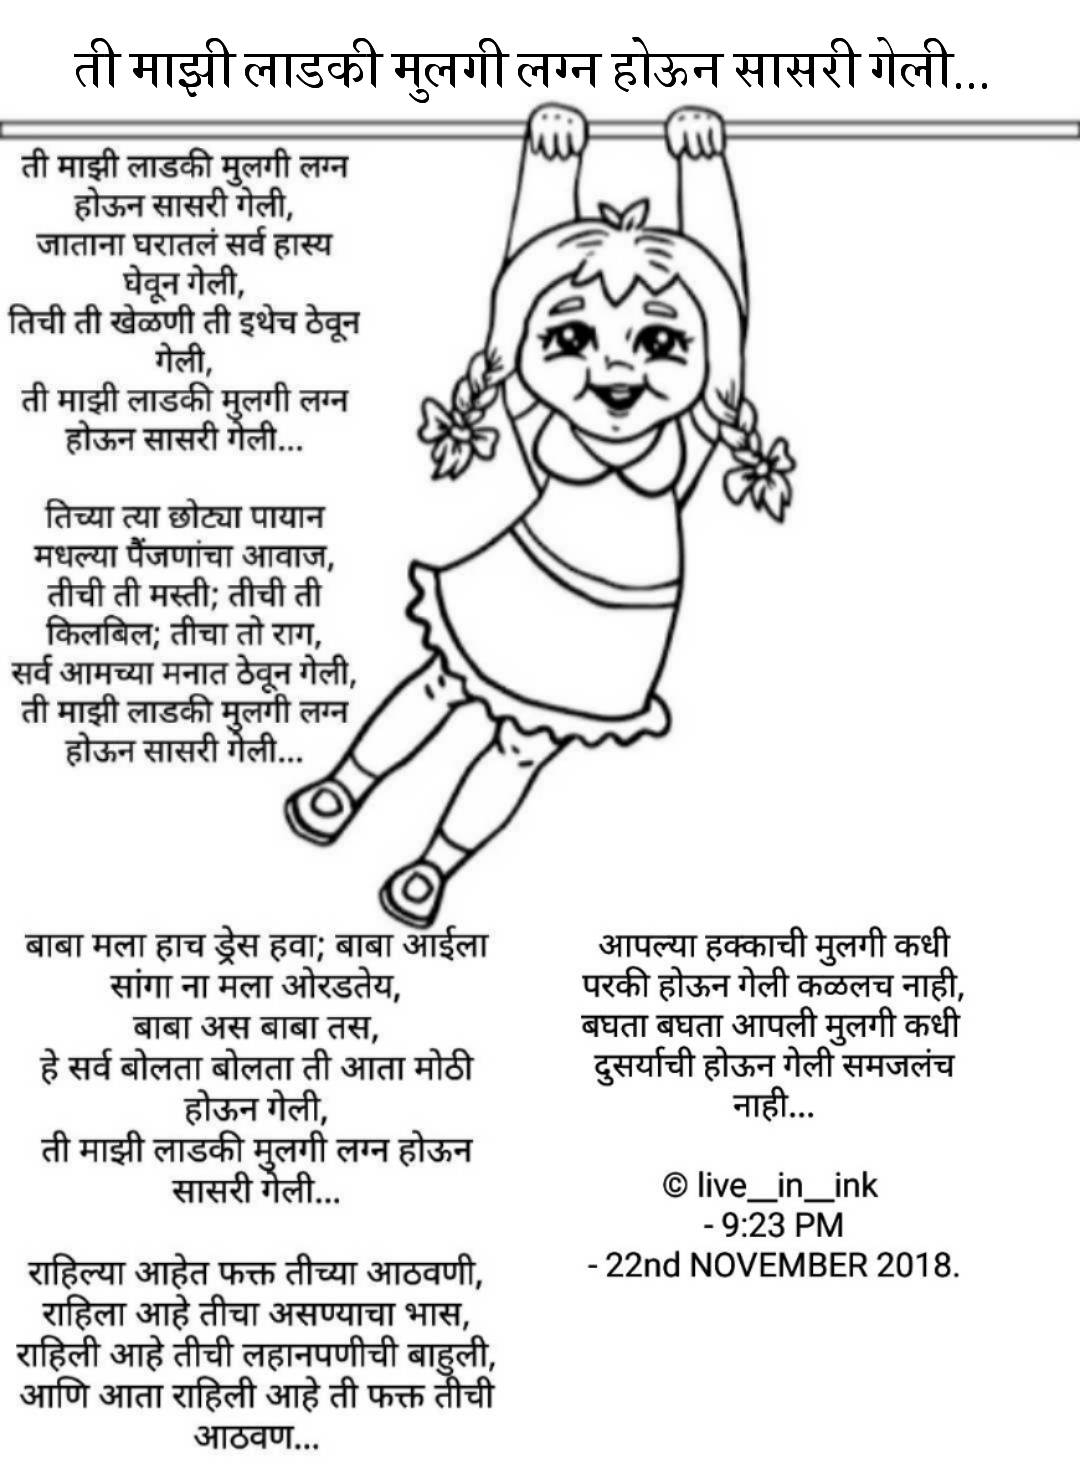 ती माझी लाडकी मुलगी लग्न होऊन सासरी गेली...
ती माझी लाडकी मुलगी लग्न
होऊन सासरी गेली,
जाताना घरातलं सर्व हास्य
घेवून गेली,
तिची ती खेळणी ती इथेच ठेवून
गेली,
ती माझी लाडकी मुलगी लग्न
होऊन सासरी गेली...
तिच्या त्या छोट्या पायान
मधल्या पैंजणांचा आवाज,
तीची ती मस्ती; तीची ती
किलबिल; तीचा तो राग,
सर्व आमच्या मनात ठेवून गेली,
ती माझी लाडकी मुलगी लग्न
होऊन सासरी गेली...
बाबा मला हाच ड्रेस हवा; बाबा आईला
सांगा ना मला ओरडतेय,
बाबा अस बाबा तस,
हे सर्व बोलता बोलता ती आता मोठी
होऊन गेली,
ती माझी लाडकी मुलगी लग्न होऊन
सासरी गेली...
राहिल्या आहेत फक्त तीच्या आठवणी,
राहिला आहे तीचा असण्याचा भास,
राहिली आहे तीची लहानपणीची बाहुली,
आणि आता राहिली आहे ती फक्त तीची
आठवण...
आपल्या हक्काची मुलगी कधी
परकी होऊन गेली कळलच नाही,
बघता बघता आपली मुलगी कधी
दुसर्याची होऊन गेली समजलंच
नाही...
© live__in__ink
- 9:23 PM
- 22nd NOVEMBER 2018.